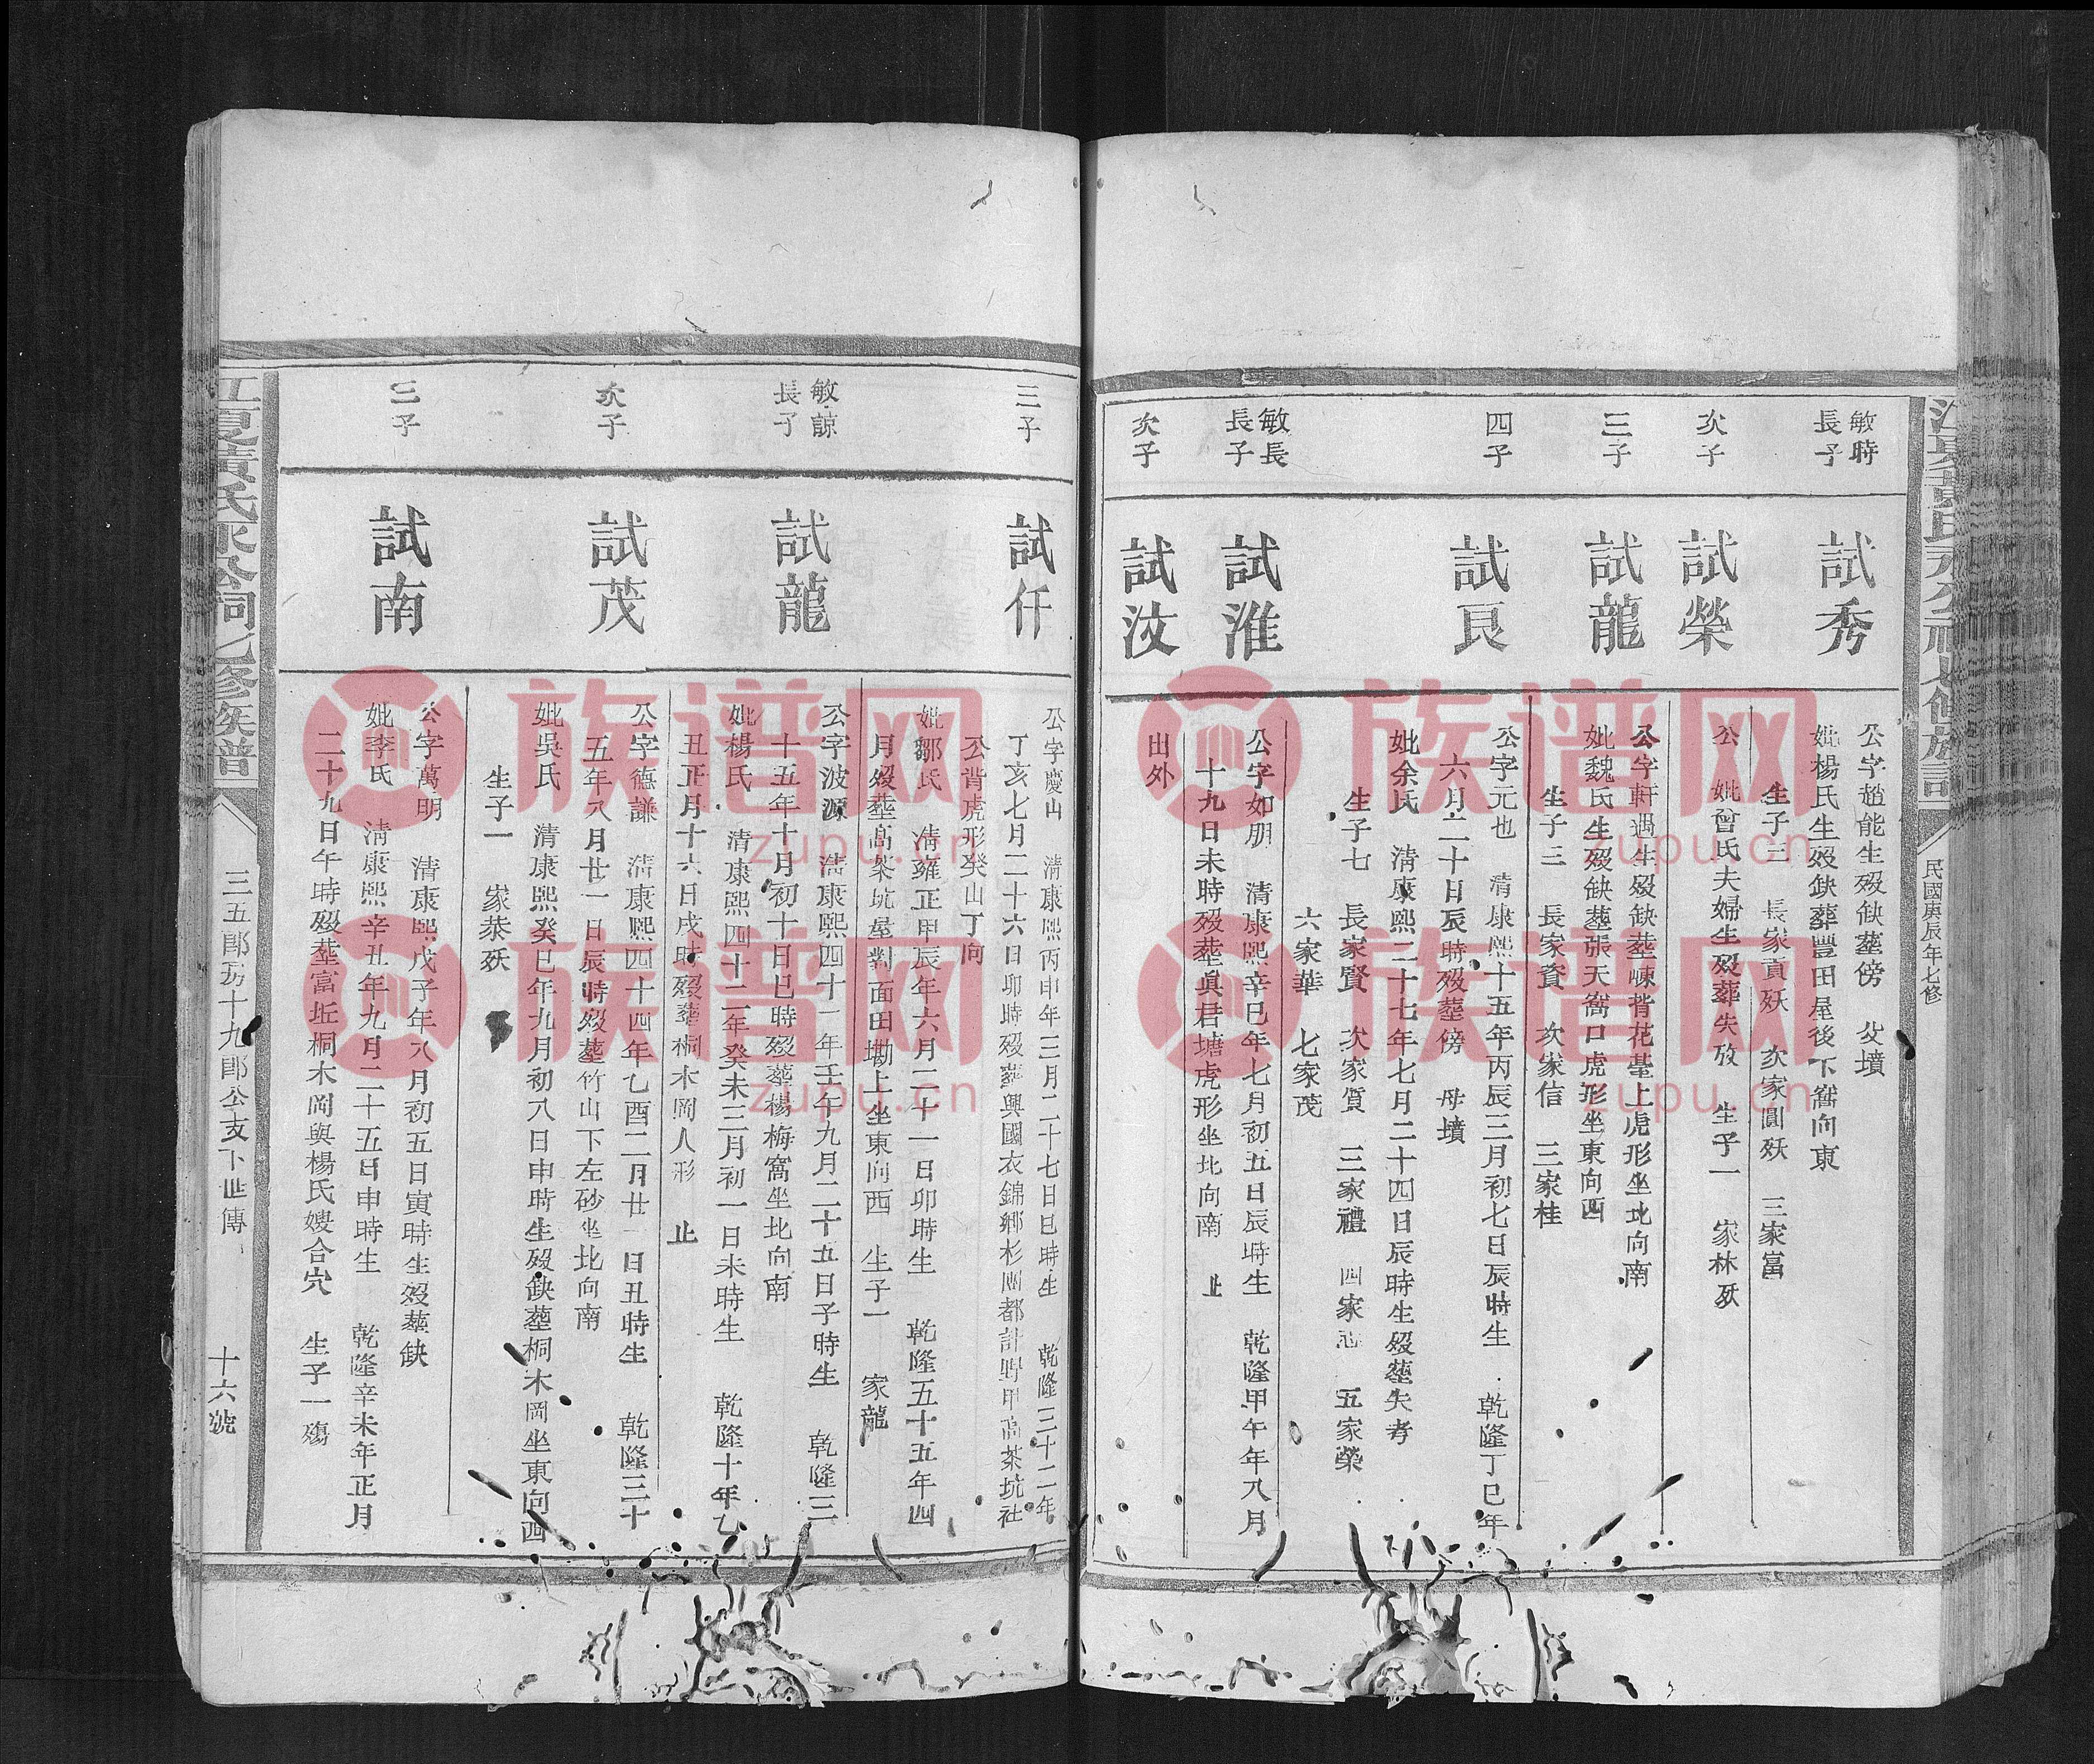 民國庚辰年七修
敏時
長子
試秀
公字趙能生歿缺塟傍 父墳
妣楊氏生歿缺葬豐田屋後下窩向東
生子三 長家貢殀 次家圓殀 三家富
次子
試榮
公 妣曾氏夫婦生歿葬失攷 生子一 家林殀
三子
試龍
公字軒遇生歿缺塟崠揹花臺上虎形坐北向南
妣魏氏生歿缺塟張天窩口虎形坐東向西
生子三 長家資 次家信 三家桂
四子
試艮
公字元也 清康熙十五年丙辰三月初七日辰時生 乾隆丁巳年
六月二十日辰時歿塟傍 母墳
妣余氏 清康熙二十七年七月二十四日辰時生歿塟失考
生子七 長家賢 次家質 三家禮 四家忠 五家榮
六家華 七家茂
敏長
長子
試淮
公字如朋 清康熙辛巳年七月初五日辰時生 乾隆甲午年八月
十九日未時歿塟真君塘虎形坐北向南 止
次子
試汶
出外
三子
試仟
公字慶山 清康熙丙申年三月二十七日巳時生 乾隆三十二年
丁亥七月二十六日卯時歿葬興國衣錦鄉杉團都計野甲高茶坑社
公背虎形癸山丁向
妣鄒氏 清雍正甲辰年六月二十一日卯時生 乾隆五十五年四
月歿塟高茶坑屋對面田墈上坐東向西 生子一 家龍
敏諒
長子
試龍
公字波源 清康熙四十一年壬午九月二十五日子時生 乾隆三
十五年十月初十日巳時歿塟楊梅窩坐北向南
妣楊氏 清康熙四十二年癸未三月初一日未時生 乾隆十年乙
丑正月十六日戌時歿塟桐木岡人形 止
次子
試茂
公字德謙 清康熙四十四年乙酉二月廿一日丑時生 乾隆三十
五年八月廿一日辰時歿塟竹山下左砂坐北向南
妣吳氏 清康熙癸巳年九月初八日申時生歿缺塟桐木岡坐東向西
生子一 家恭殀
三子
試南
公字萬明 清康熙戊子年八月初五日寅時生歿塟缺
妣李氏 清康熙辛丑年九月二十五日申時生 乾隆辛未年正月
二十九日午時歿塟富坵桐木岡與楊氏嫂合穴 生子一殤
江夏黃氏永公祠七修族譜
三五郎房十九郎公支下世傳
十六號
族谱网
zupu.cn
族谱网
zupu.cn
族谱网
zupu.cn
族谱网
zupu.cn